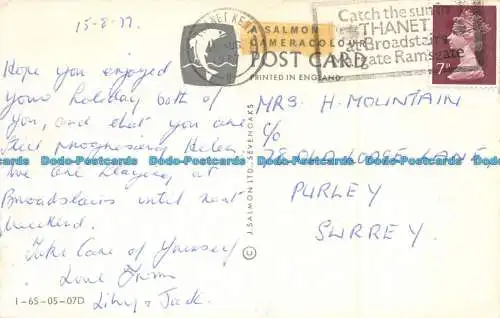 15-8-77.
Hope you enjoyed
your holiday both of
you, and that you are
still progressing Helen
We are staying at
Broadstairs until next
weekend.
Take Care of Yourself
Love From
Libby & Jack.
1-65-05-07D
© J. SALMON LTD., SEVENOAKS
THANET KENT
A SALMON
CAMERACOLOUR
POST CARD
PRINTED IN ENGLAND
Catch the sun in
THANET
at Broadstairs
Margate Ramsgate
7P
MRS H. MOUNTAIN
C/O
78 OLD LODGE LANE
PURLEY
SURREY.
Dodo-Postcards Dodo-Postcards Dodo-Postcards Dodo-Postcards